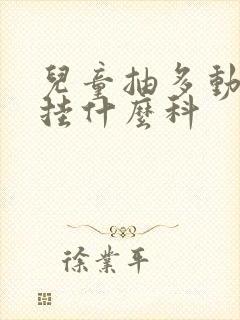 兒童抽多動
挂什麼科
徐業平